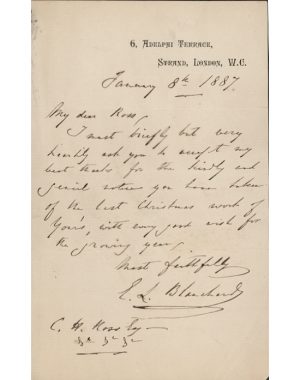 6, ADELPHI TERRACE,
STRAND, LONDON, W.C.
January 8th 1887.
My dear Ross,
I must briefly but very
heartily ask you to accept my
best thanks for the kindly and
genial notices you have taken
of the last Christmas work of
Yours, with every good wish for
the growing year,
Most faithfully
E. L. Blanchard
C. H. Ross Esq